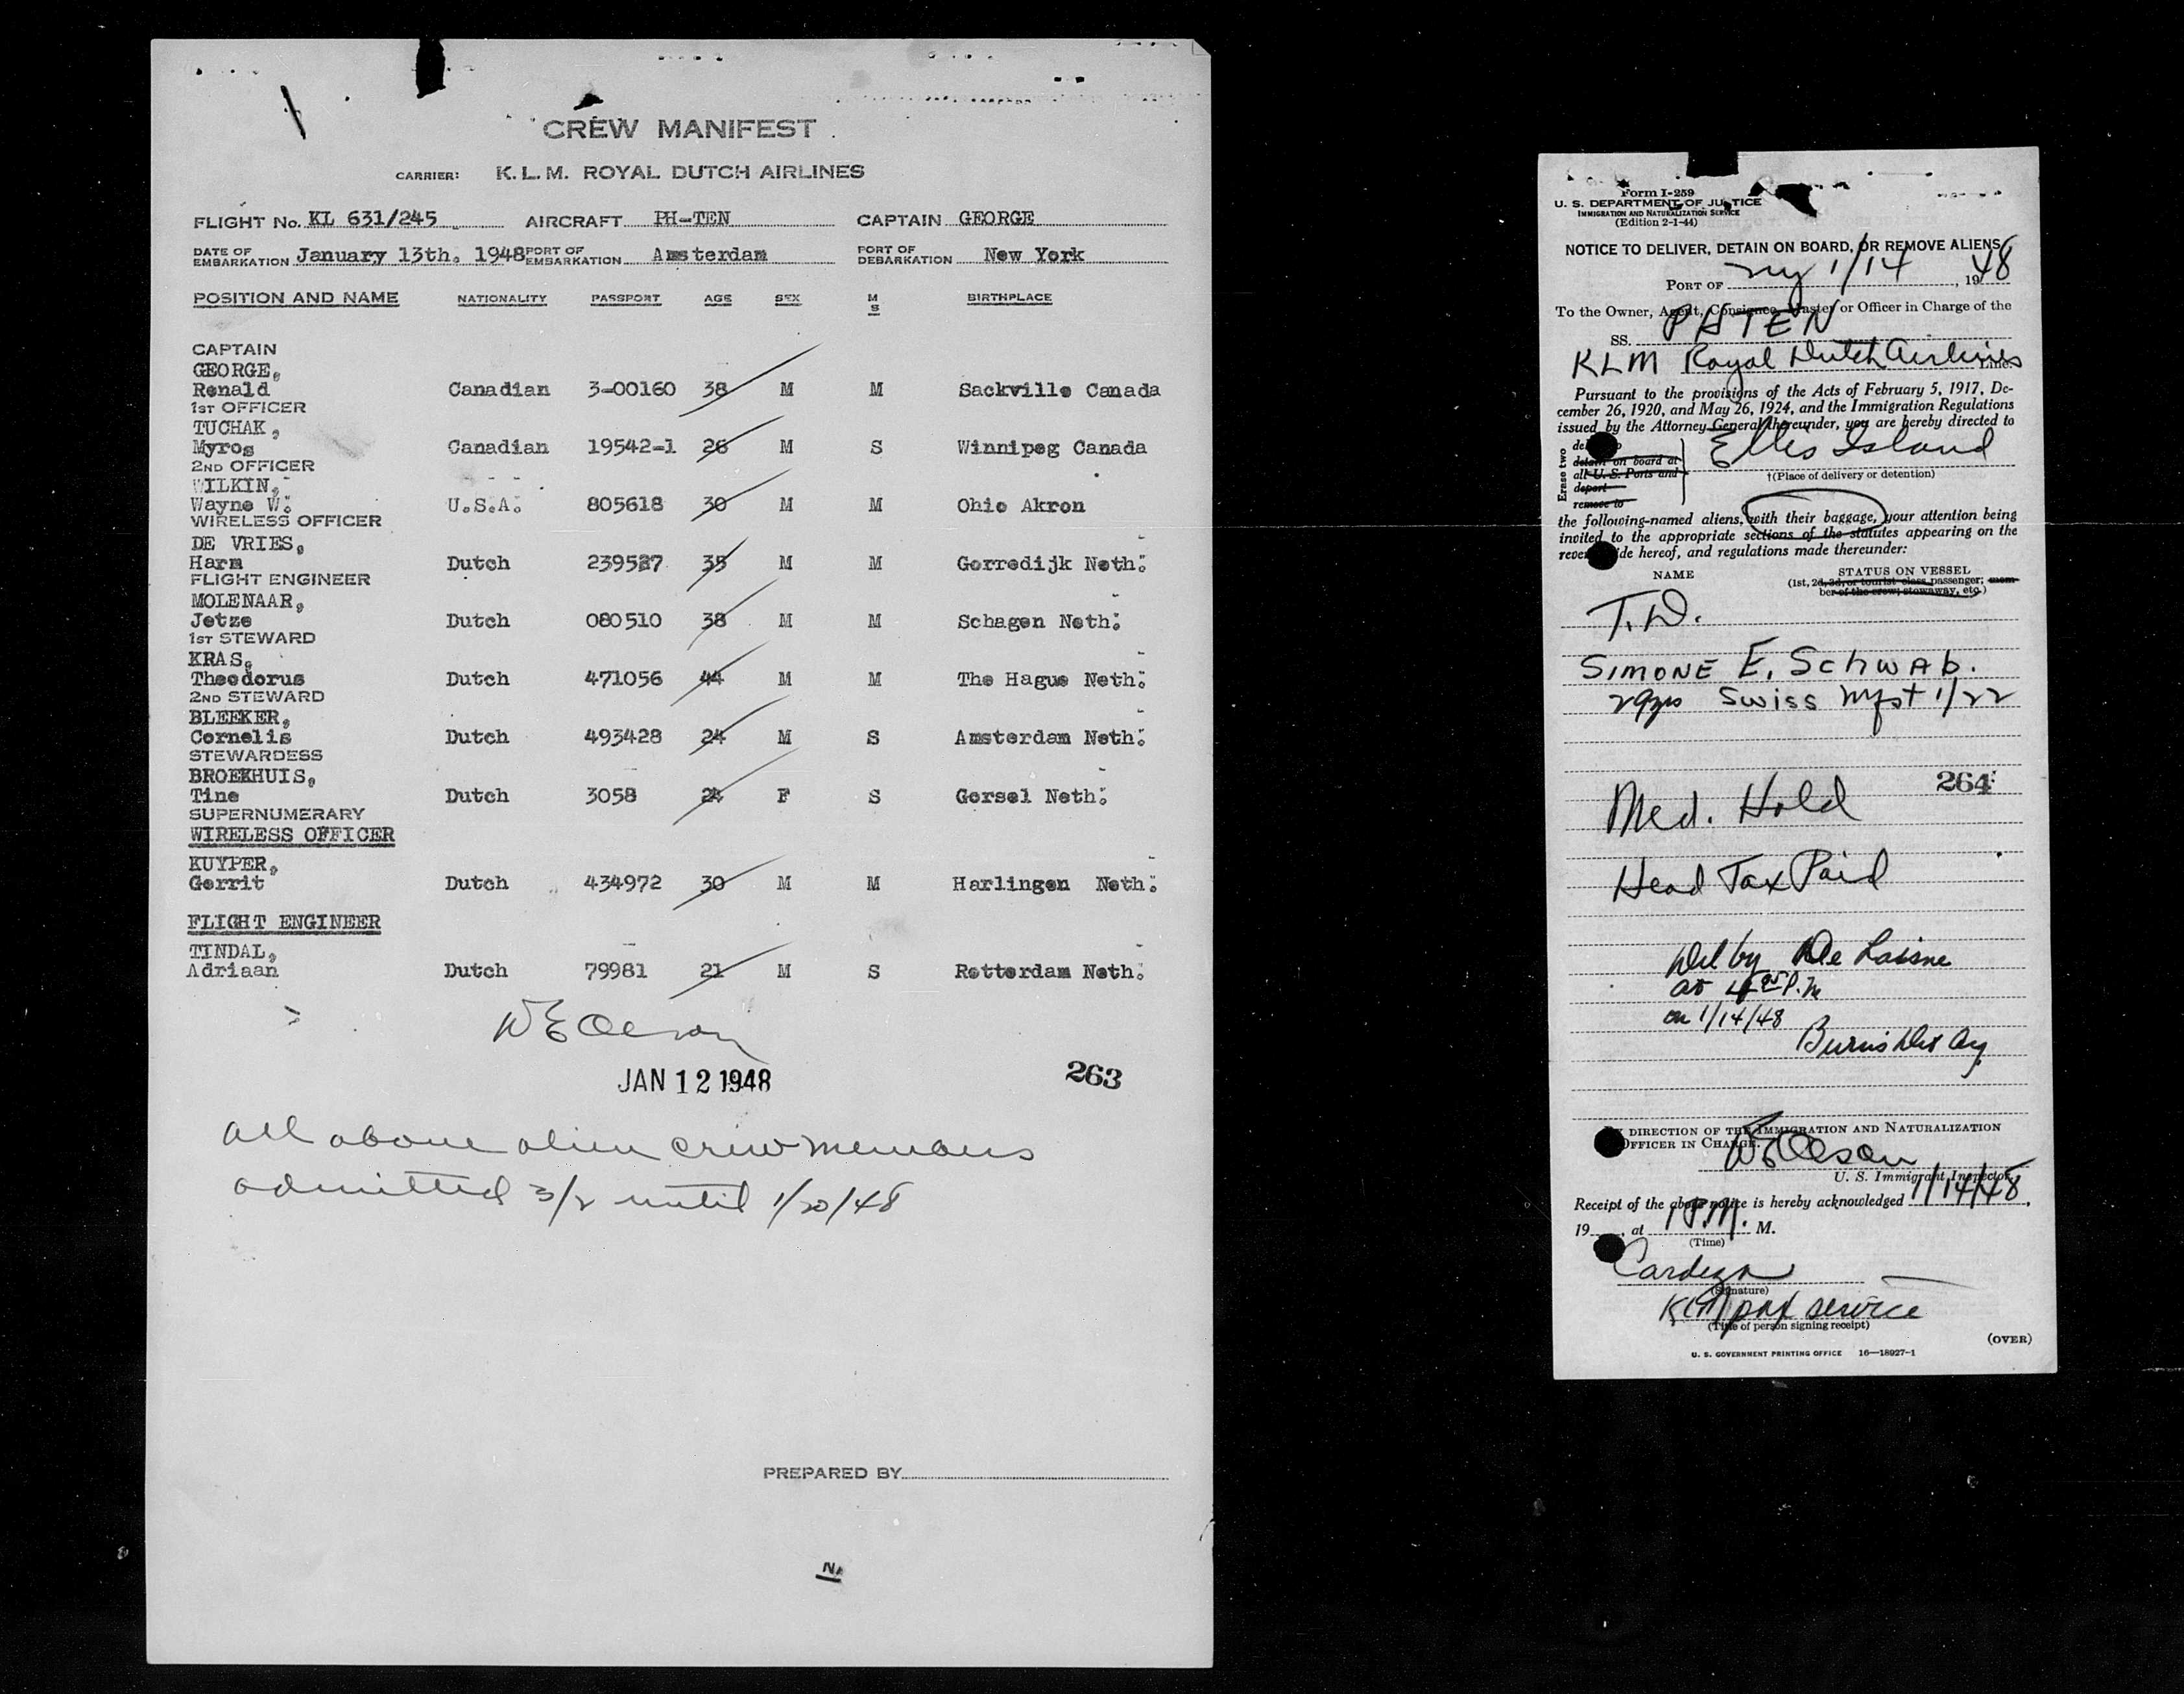 CREW MANIFEST
CARRIER: K.L.M. ROYAL DUTCH AIRLINES
FLIGHT No. KL 631/245 AIRCRAFT PH-TEN CAPTAIN GEORGE
DATE OF EMBARKATION January 13th. 1948 PORT OF EMBARKATION Amsterdam PORT OF DEBARKATION New York
POSITION AND NAME NATIONALITY PASSPORT AGE SEX M S BIRTHPLACE
CAPTAIN
GEORGE,
Ronald Canadian 3-00160 38 M M Sackville Canada
1ST OFFICER
TUCHAK,
Myros Canadian 19542-1 26 M S Winnipeg Canada
2ND OFFICER
WILKIN,
Wayne W. U.S.A. 805618 30 M M Ohio Akron
WIRELESS OFFICER
DE VRIES,
Harm Dutch 239527 35 M M Gorredijk Neth.
FLIGHT ENGINEER
MOLENAAR,
Jetze Dutch 080510 38 M M Schagen Neth.
1ST STEWARD
KRAS,
Theodorus Dutch 471056 44 M M The Hague Neth.
2ND STEWARD
BLEEKER,
Cornelis Dutch 493428 24 M S Amsterdam Neth.
STEWARDESS
BROEKHUIS,
Tine Dutch 3058 24 F S Gorsel Neth.
SUPERNUMERARY
WIRELESS OFFICER
KUYPER,
Gerrit Dutch 434972 30 M M Harlingen Neth.
FLIGHT ENGINEER
TINDAL,
Adriaan Dutch 79981 21 M S Rotterdam Neth.
W E Olson
JAN 12 1948 263
all above alien crew members
admitted 3/2 until 1/20/48
PREPARED BY
Form I-259
U. S. DEPARTMENT OF JUSTICE
IMMIGRATION AND NATURALIZATION SERVICE
(Edition 2-1-44)
NOTICE TO DELIVER, DETAIN ON BOARD, OR REMOVE ALIENS
PORT OF NY 1/14, 1948
To the Owner, Agent, Consignee, Master or Officer in Charge of the
SS. PHTEN
KLM Royal Dutch Airlines Line.
Pursuant to the provisions of the Acts of February 5, 1917, De-
cember 26, 1920, and May 26, 1924, and the Immigration Regulations
issued by the Attorney General thereunder, you are hereby directed to
Erase two
detain on board at
all U. S. Ports and
deport
remove to
Ellis Island
†(Place of delivery or detention)
the following-named aliens, with their baggage, your attention being
invited to the appropriate sections of the statutes appearing on the
reverse side hereof, and regulations made thereunder:
NAME STATUS ON VESSEL
(1st, 2d, 3d, or tourist class passenger; mem-
ber of the crew; stowaway, etc.)
T.D.
SIMONE E. SCHWAB.
29yrs Swiss Mfst 1/22
264
Med. Hold
Head Tax Paid
Del by De Laisne
at P.M
on 1/14/48
Burns Det Ag
BY DIRECTION OF THE IMMIGRATION AND NATURALIZATION
OFFICER IN CHARGE.
W E Olson
U. S. Immigrant Inspector.
Receipt of the above notice is hereby acknowledged 1/14/48,
19 , at 1 P.M. M.
(Time)
Cardeza
(Signature)
KLM pax service
(Title of person signing receipt)
(OVER)
U. S. GOVERNMENT PRINTING OFFICE 16—18927-1